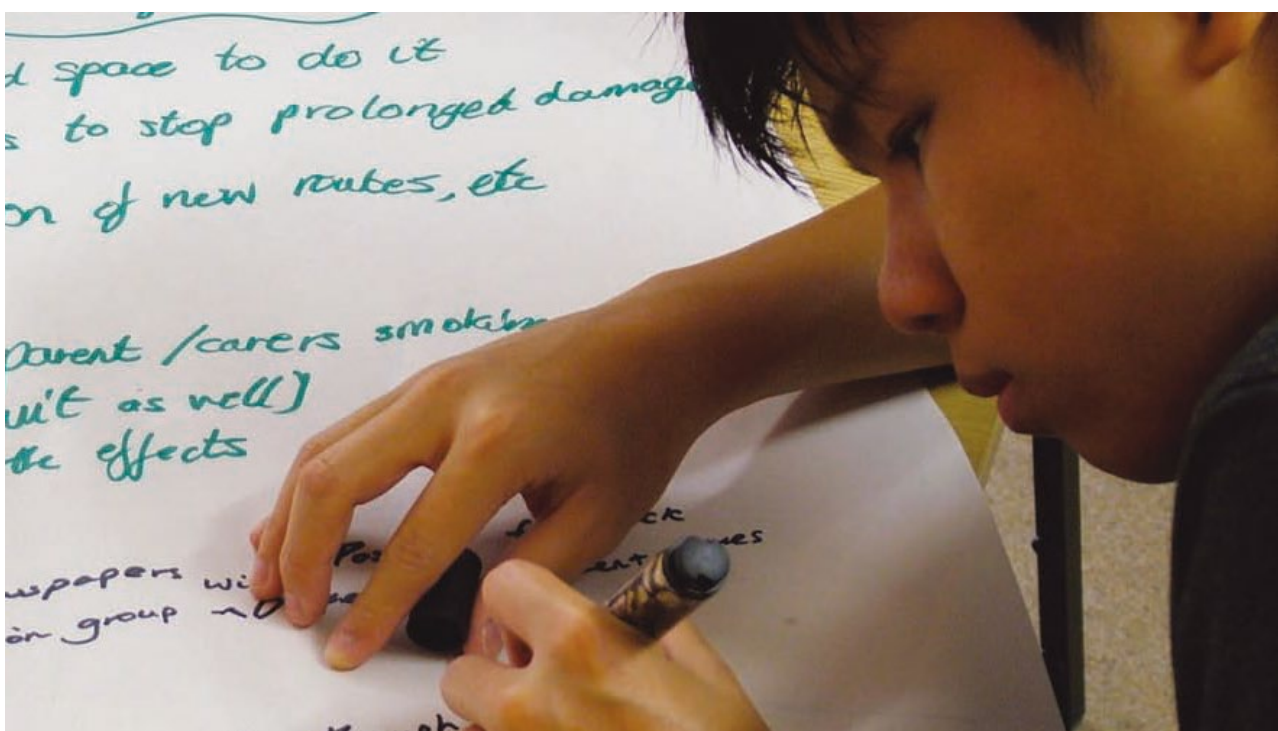 d space to do it
s to stop prolonged damage
on of new routes, etc
parent /carers smoking
uit as well]
the effects
wspapers wi Pos ck
on group no ues